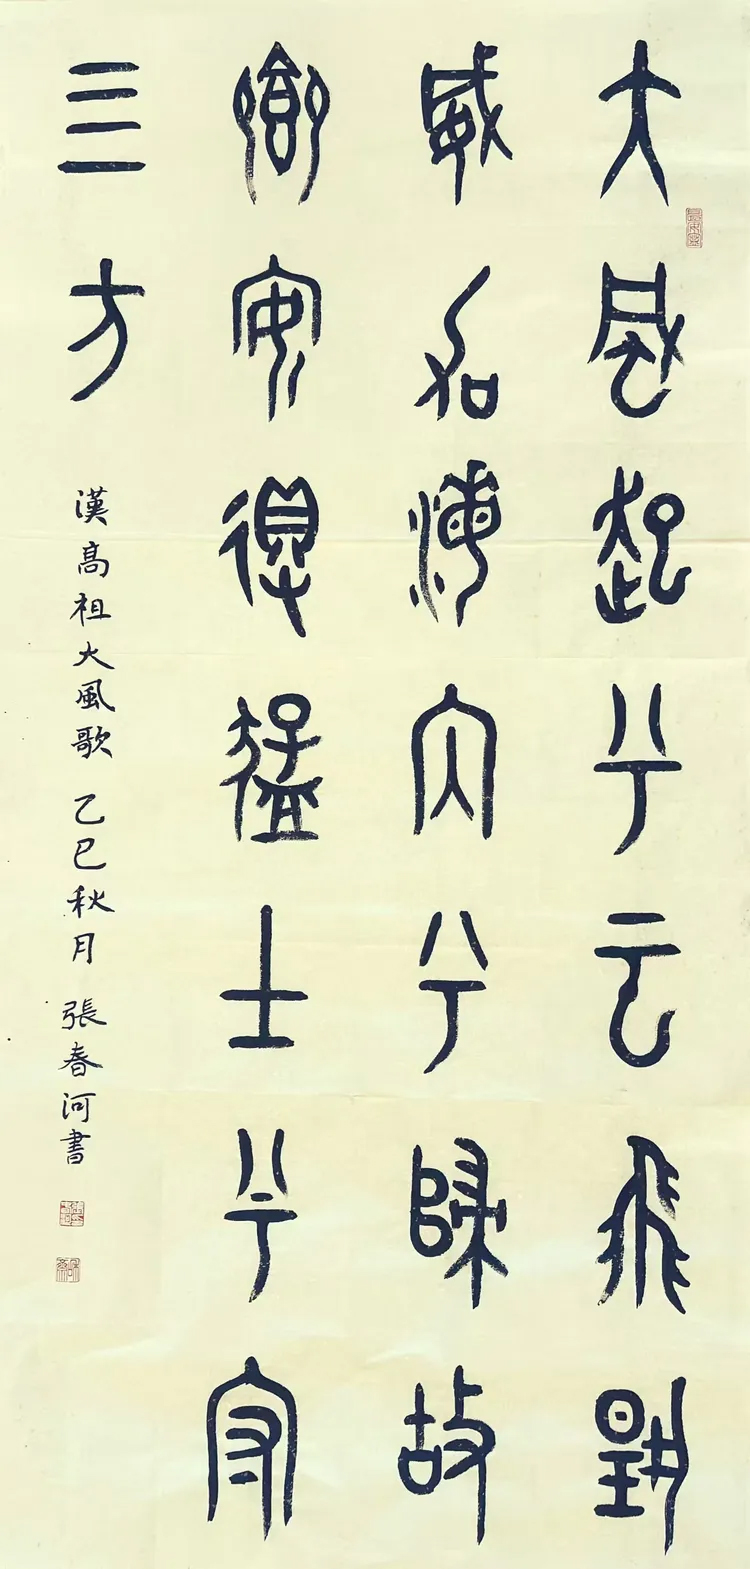 大風起兮云飛揚
威加海内兮歸故
鄉安得猛士兮守
四方
漢高祖大風歌 乙巳秋月 張春河書